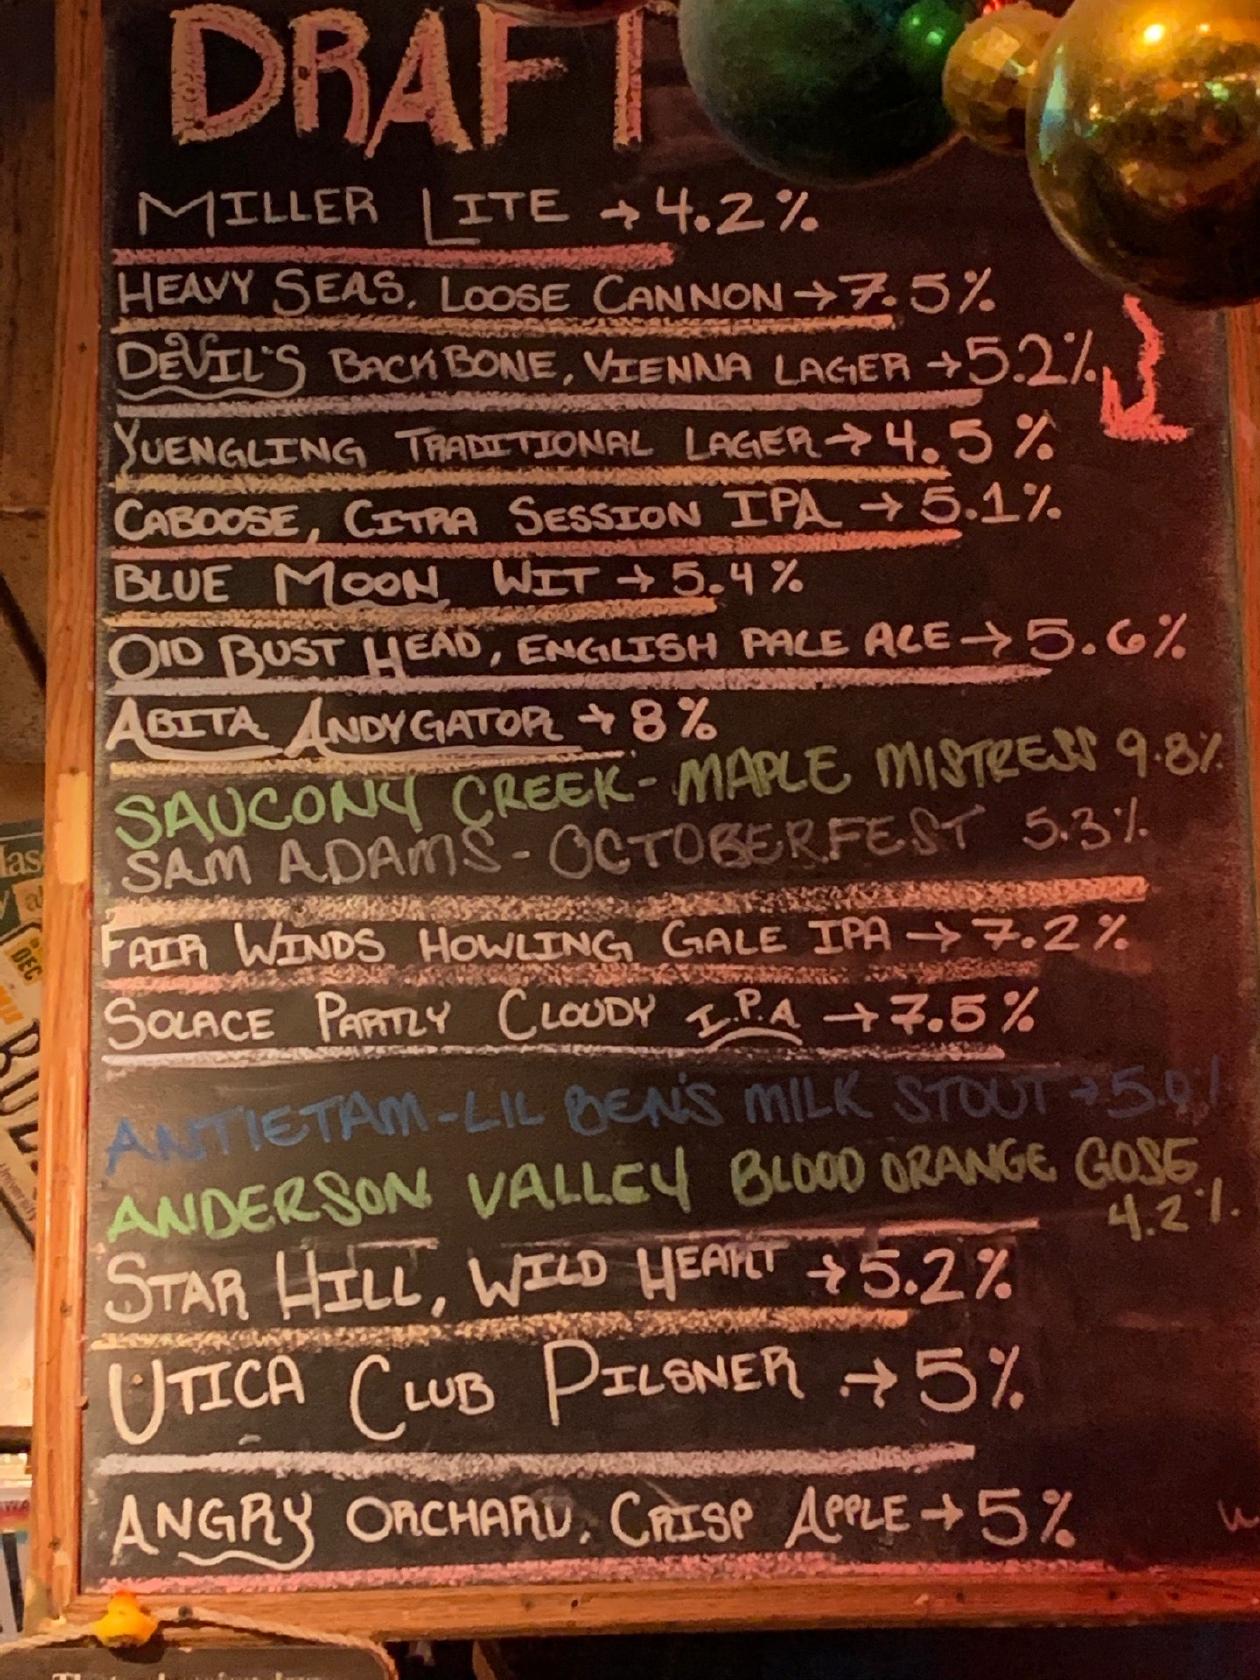 DRAFT
MILLER LITE → 4.2%
HEAVY SEAS, LOOSE CANNON → 7.5%
DEVIL'S BACKBONE, VIENNA LAGER → 5.2%
YUENGLING TRADITIONAL LAGER → 4.5%
CABOOSE, CITRA SESSION IPA → 5.1%
BLUE MOON WIT → 5.4%
OLD BUST HEAD, ENGLISH PALE ALE → 5.6%
ABITA ANDYGATOR → 8%
SAUCONY CREEK - MAPLE MISTRESS 9.8%
SAM ADAMS - OCTOBERFEST 5.3%
FAIR WINDS HOWLING GALE IPA → 7.2%
SOLACE PARTLY CLOUDY I.P.A → 7.5%
ANTIETAM - LIL BEN'S MILK STOUT → 5.0%
ANDERSON VALLEY BLOOD ORANGE GOSE
4.2%
STAR HILL, WILD HEART → 5.2%
UTICA CLUB PILSNER → 5%
ANGRY ORCHARD, CRISP APPLE → 5%
DEC